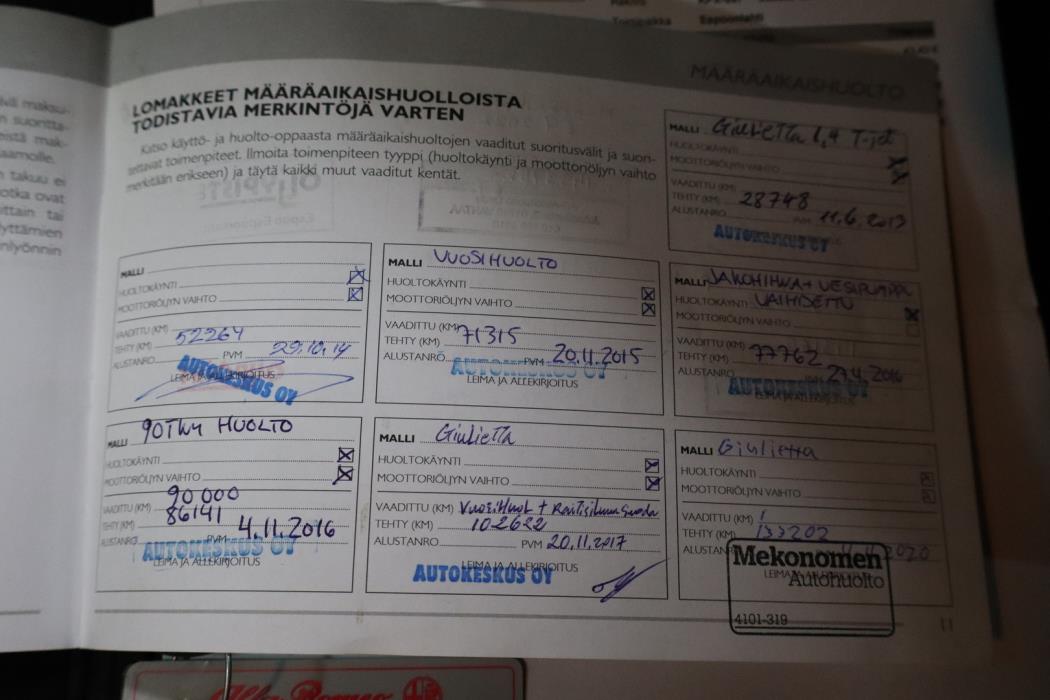 MÄÄRÄAIKAISHUOLTO
LOMAKKEET MÄÄRÄAIKAISHUOLLOISTA
TODISTAVIA MERKINTÖJÄ VARTEN
Katso käyttö- ja huolto-oppaasta määräaikaishuoltojen vaaditut suoritusvälit ja suori-
tettavat toimenpiteet. Ilmoita toimenpiteen tyyppi (huoltokäynti ja moottoriöljyn vaihto
merkitään erikseen) ja täytä kaikki muut vaaditut kentät.
MALLI Giulietta 1,4 T-jet
HUOLTOKÄYNTI
MOOTTORIÖLJYN VAIHTO
VAADITTU (KM)
TEHTY (KM) 28748
ALUSTANRO PVM 11.6.2013
AUTOKESKUS OY
MALLI
HUOLTOKÄYNTI
MOOTTORIÖLJYN VAIHTO
VAADITTU (KM)
TEHTY (KM) 52264
ALUSTANRO PVM 29.10.14
AUTOKESKUS OY
LEIMA JA ALLEKIRJOITUS
MALLI VUOSIHUOLTO
HUOLTOKÄYNTI
MOOTTORIÖLJYN VAIHTO
VAADITTU (KM)
TEHTY (KM) 71315
ALUSTANRO PVM 20.11.2015
AUTOKESKUS OY
LEIMA JA ALLEKIRJOITUS
MALLI JAKOHIHNA + VESIPUMPPU
HUOLTOKÄYNTI VAIHDETTU
MOOTTORIÖLJYN VAIHTO
VAADITTU (KM)
TEHTY (KM) 77762
ALUSTANRO 27.4.2016
AUTOKESKUS OY
LEIMA JA ALLEKIRJOITUS
MALLI 90TKM HUOLTO
HUOLTOKÄYNTI
MOOTTORIÖLJYN VAIHTO
VAADITTU (KM) 90 000
TEHTY (KM) 86141
ALUSTANRO PVM 4.11.2016
AUTOKESKUS OY
LEIMA JA ALLEKIRJOITUS
MALLI Giulietta
HUOLTOKÄYNTI
MOOTTORIÖLJYN VAIHTO
VAADITTU (KM)
TEHTY (KM) 102622
ALUSTANRO PVM 20.11.2017
AUTOKESKUS OY
LEIMA JA ALLEKIRJOITUS
MALLI Giulietta
HUOLTOKÄYNTI
MOOTTORIÖLJYN VAIHTO
VAADITTU (KM)
TEHTY (KM) 133202
ALUSTANRO 2020
Mekonomen
Autohuolto
4101-319
11
Alfa Romeo